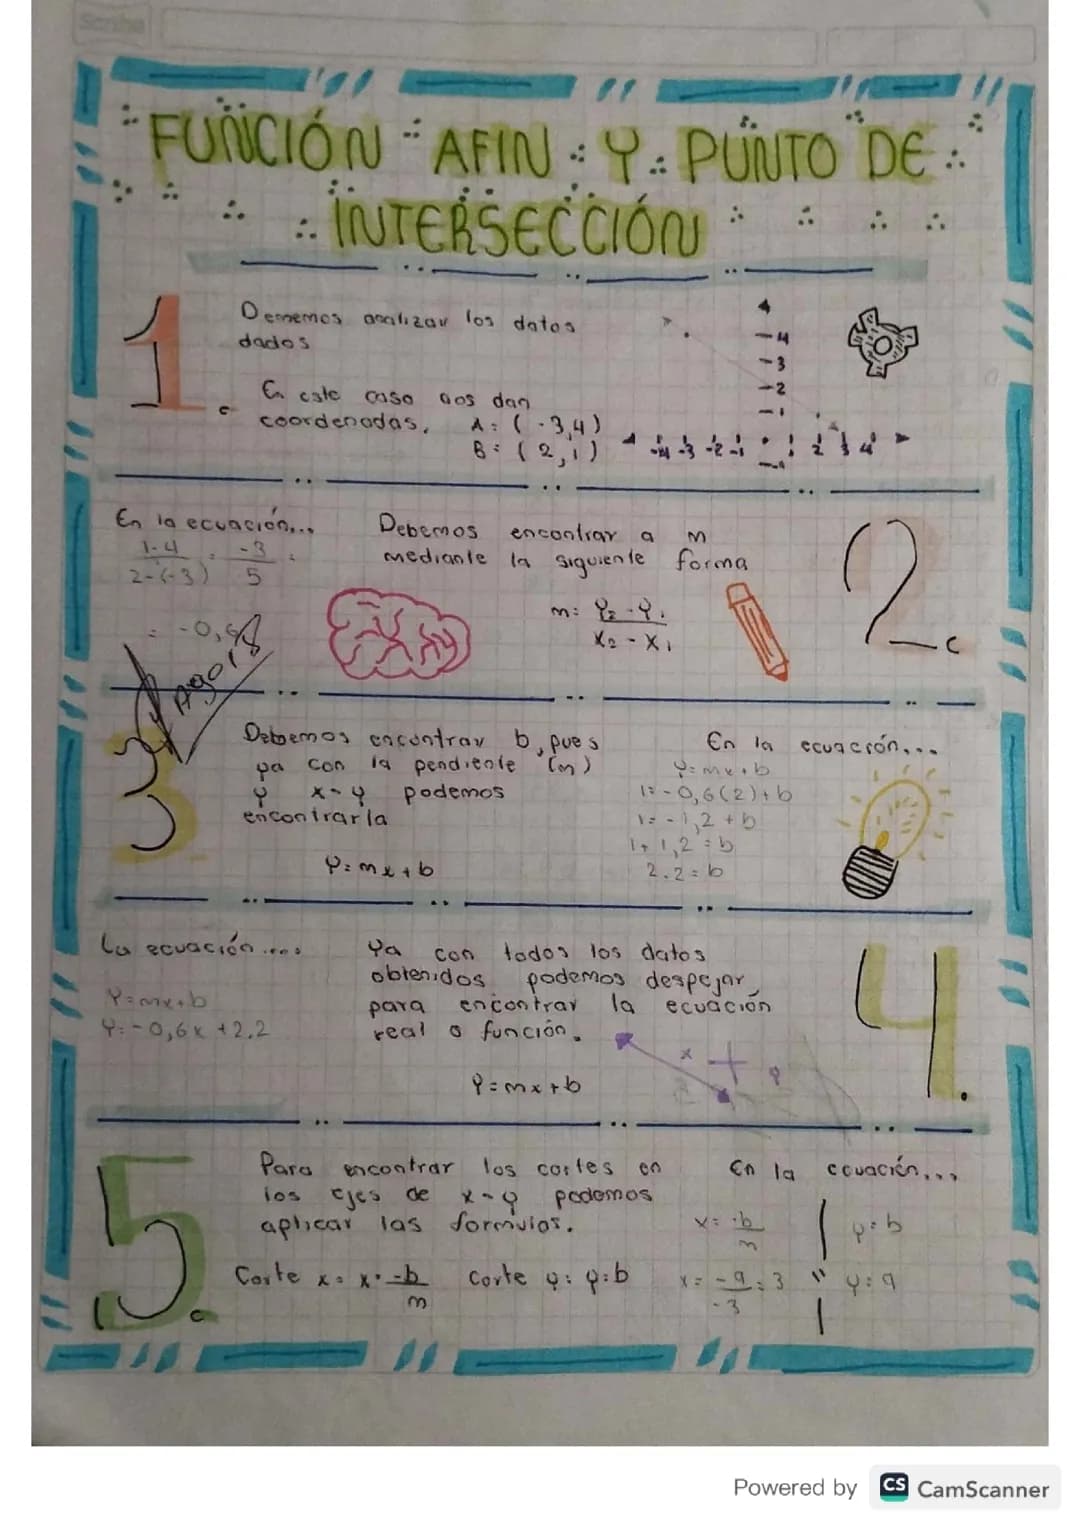 Scribe
FUNCIÓN AFIN Y PUNTO DE
INTERSECCIÓN
1.
Dememos analizar los datos
dados
En este caso nos dan
coordenadas. A = (-3,4)
B = (2,1)
4
3
2
1
-4 -3 -2 -1 1 2 3 4
-1
En la ecuación...
1-4 = -3 =
2-(-3) 5
= -0,6
Debemos encontrar a m
mediante la siguiente forma
m = Y₂ - Y₁
X₂ - X₁
2.
Ago 18
3
Debemos encontrar b, pues
ya con la pendiente (m)
y x-y podemos
encontrarla
Y = mx + b
En la ecuación...
Y = mx + b
1 = -0,6(2) + b
1 = -1,2 + b
1 + 1,2 = b
2.2 = b
La ecuación ....
Y = mx + b
Y = -0,6x + 2.2
Ya con todos los datos
obtenidos podemos despejar
para encontrar la ecuación
real o función.
Y = mx + b
x + y
4.
5.
Para encontrar los cortes en
los ejes de x-y podemos
aplicar las formulas.
Corte x = x = -b
m
Corte y: y = b
En la ecuación...
x = -b
m
y = b
x = -9 = 3
-3
y = 9
Powered by CS CamScanner